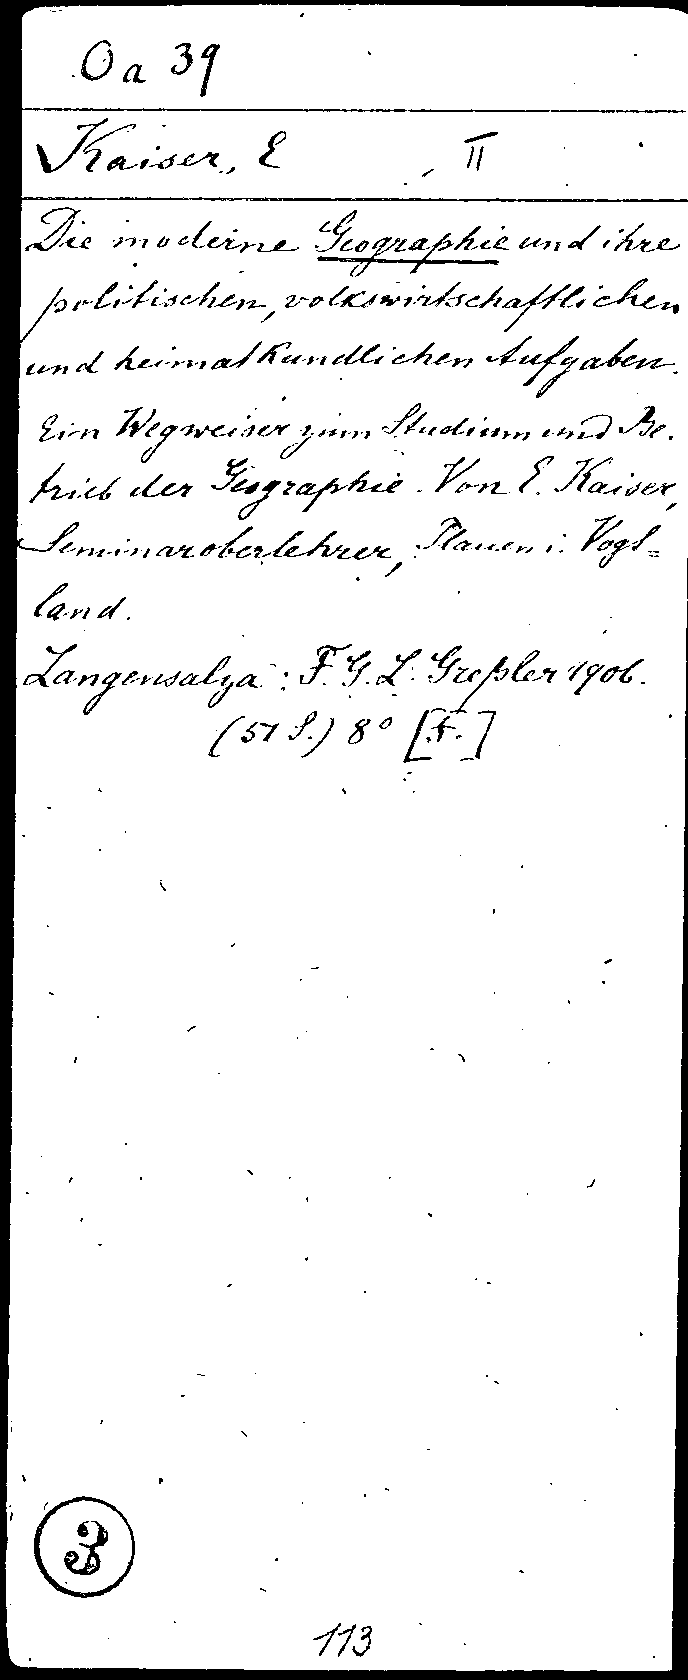 Oa 39
Kaiser, E II
Die moderne Geographie und ihre
politischen, volkswirtschaftlichen
und heimatkundlichen Aufgaben.
Ein Wegweiser zum Studium und Be-
trieb der Geographie. Von E. Kaiser,
Seminaroberlehrer, Plauen i. Vogt=
land.
Langensalza: F. G. L. Greßler 1906.
(51 S.) 8° [F.]
3
113